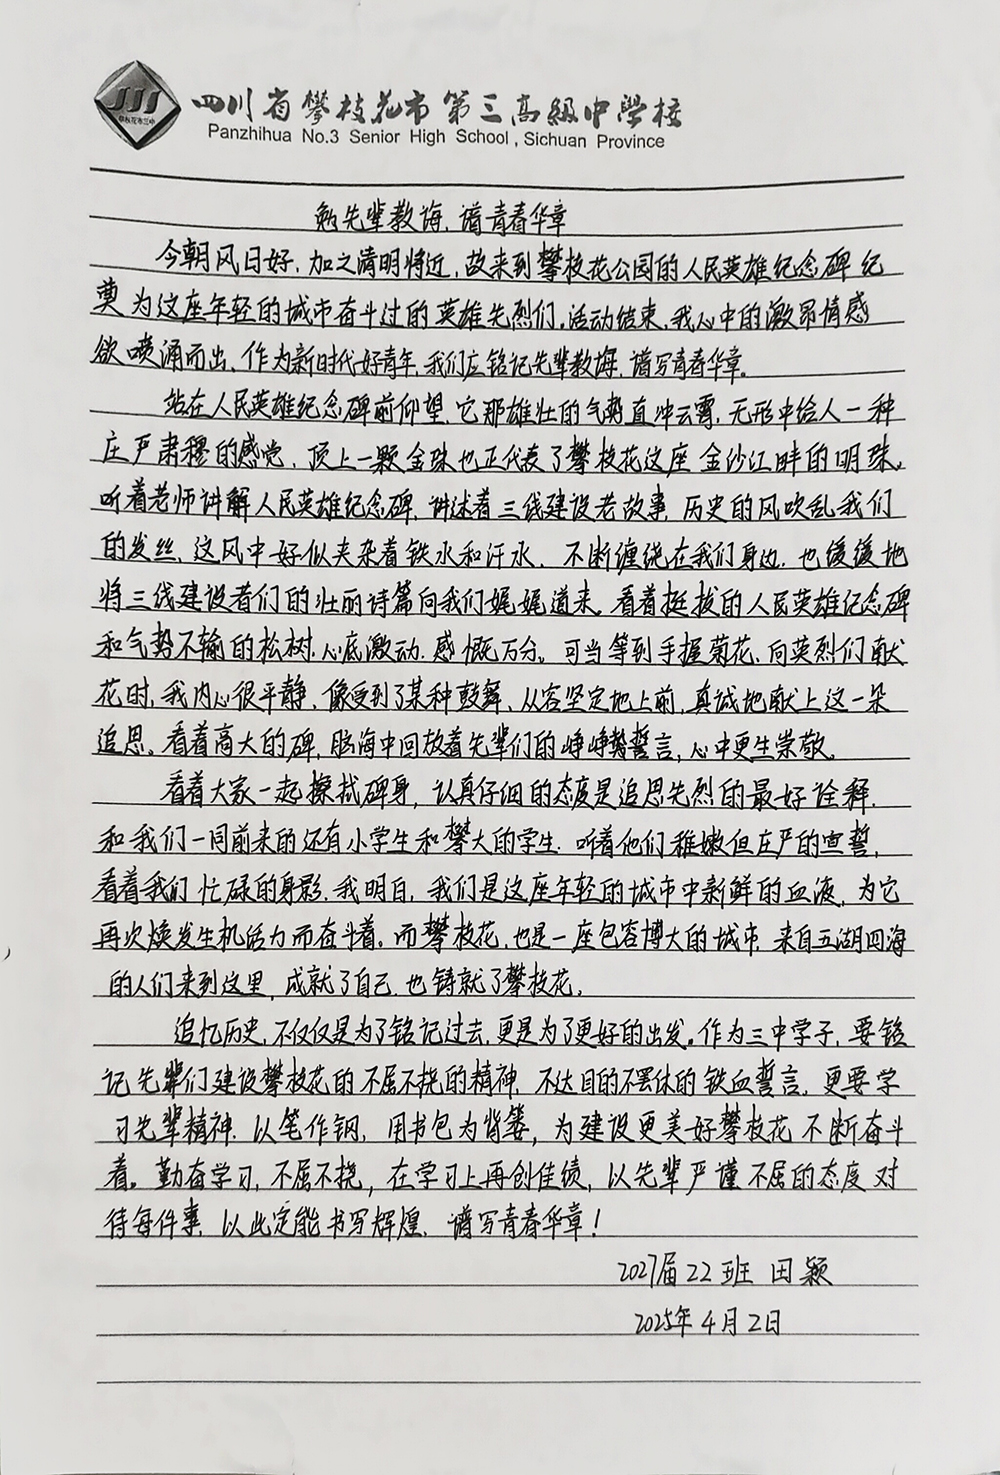 四川省攀枝花市第三高级中学校
Panzhihua No.3 Senior High School, Sichuan Province
攀枝花市三中
勉先辈教诲,谱青春华章
今朝风日好,加之清明将近,故来到攀枝花公园的人民英雄纪念碑 纪
奠为这座年轻的城市奋斗过的英雄先烈们。活动结束,我心中的激昂情感
欲喷涌而出,作为新时代好青年,我们应铭记先辈教诲,谱写青春华章。
站在人民英雄纪念碑前仰望,它那雄壮的气势直冲云霄,无形中给人一种
庄严肃穆的感觉,顶上一颗金珠也正代表了攀枝花这座金沙江畔的明珠。
听着老师讲解人民英雄纪念碑,讲述着三线建设老故事,历史的风吹乱我们
的发丝,这风中好似夹杂着铁水和汗水,不断缠绕在我们身边,也缓缓地
将三线建设者们的壮丽诗篇向我们娓娓道来。看着挺拔的人民英雄纪念碑
和气势不输的松树,心底激动,感慨万分。可当等到手握菊花,向英烈们献
花时,我内心很平静,像受到了某种鼓舞,从容坚定地上前,真诚地献上这一朵
追思。看着高大的碑,脑海中回放着先辈们的铮铮誓言,心中更生崇敬。
看着大家一起擦拭碑身,认真仔细的态度是追思先烈的最好诠释,
和我们一同前来的还有小学生和攀大的学生,听着他们稚嫩但庄严的宣誓,
看着我们忙碌的身影,我明白,我们是这座年轻的城市中新鲜的血液,为它
再次焕发生机活力而奋斗着。而攀枝花,也是一座包容博大的城市,来自五湖四海
的人们来到这里,成就了自己,也铸就了攀枝花。
追忆历史,不仅仅是为了铭记过去,更是为了更好的出发。作为三中学子,要铭
记先辈们建设攀枝花的不屈不挠的精神,不达目的不罢休的铁血誓言,更要学
习先辈精神,以笔作钢,用书包为背篓,为建设更美好攀枝花不断奋斗
着。勤奋学习,不屈不挠,在学习上再创佳绩,以先辈严谨不屈的态度对
待每件事,以此定能书写辉煌,谱写青春华章!
2027届22班 田颖
2025年4月2日